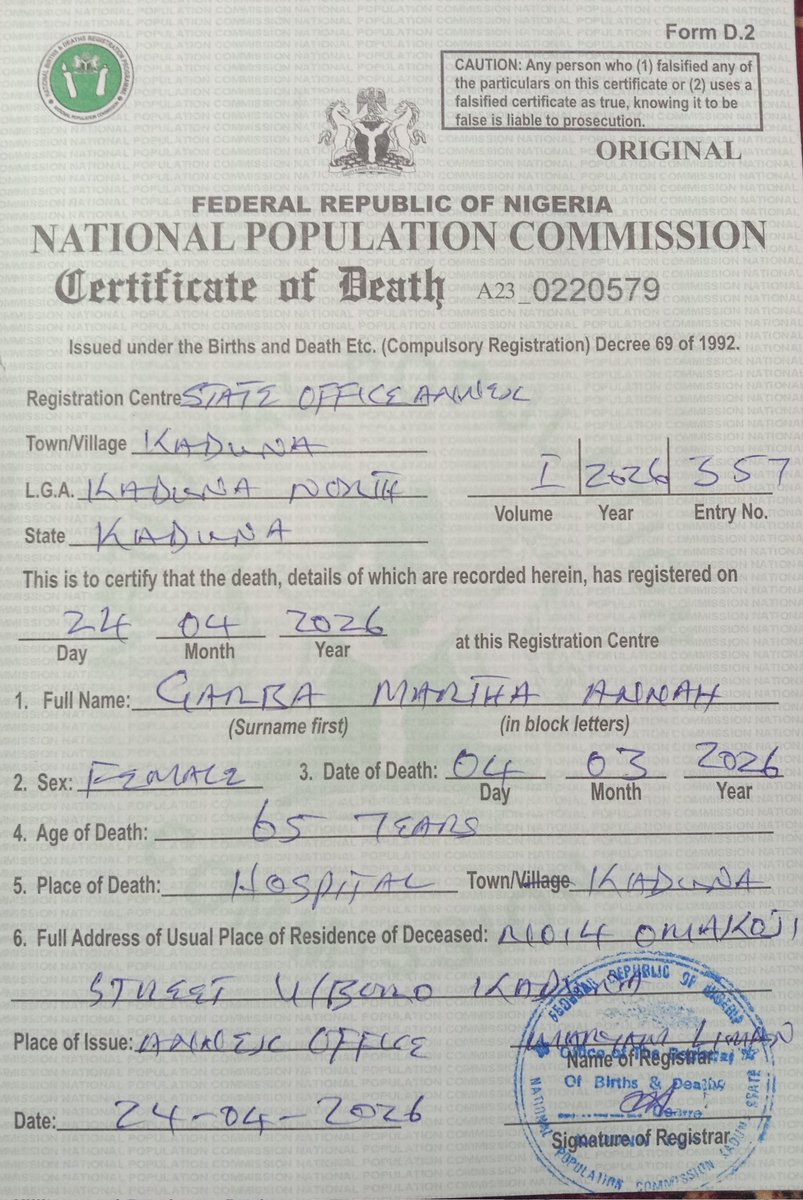 Form D.2
NATIONAL BIRTHS & DEATHS REGISTRATION PROGRAMME
NATIONAL POPULATION COMMISSION
CAUTION: Any person who (1) falsified any of
the particulars on this certificate or (2) uses a
falsified certificate as true, knowing it to be
false is liable to prosecution.
ORIGINAL
FEDERAL REPUBLIC OF NIGERIA
NATIONAL POPULATION COMMISSION
Certificate of Death A23_0220579
Issued under the Births and Death Etc. (Compulsory Registration) Decree 69 of 1992.
Registration Centre STATE OFFICE ANNEX
Town/Village KADUNA
L.G.A. KADUNA NORTH
I 2026 357
Volume Year Entry No.
State KADUNA
This is to certify that the death, details of which are recorded herein, has registered on
24 04 2026 at this Registration Centre
Day Month Year
1. Full Name: GARBA MARTHA ANNAH
(Surname first) (in block letters)
2. Sex: FEMALE 3. Date of Death: 04 03 2026
Day Month Year
4. Age of Death: 65 YEARS
5. Place of Death: HOSPITAL Town/Village KADUNA
6. Full Address of Usual Place of Residence of Deceased: NO14 OMAKOJI
STREET U/BORO KADUNA
Place of Issue: ANNEX OFFICE MARYAM LIMAN
Name of Registrar
Date: 24-04-2026
Signature of Registrar
FEDERAL REPUBLIC OF NIGERIA
Office of The Registrar
Of Births & Deaths
Centre
NATIONAL POPULATION COMMISSION KADUNA STATE